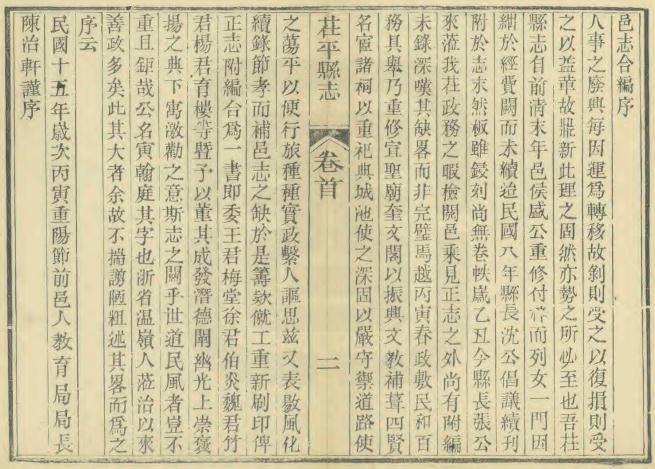 邑志合編序
人事之廢興每因運爲轉移故剝則受之以復損則受
之以益革故鼎新此理之固然亦勢之所必至也吾茌
縣志自前清末年邑侯盛公重修付梓而列女一門因
絀於經費闕而未續迨民國八年縣長沈公倡議續刊
附於志末然板雖鋟刻尚無卷帙歲乙丑今縣長張公
來蒞我茌政務之暇檢閱邑乘見正志之外尚有附編
未錄深嘆其缺畧而非完璧焉越丙寅春政敷民和百
務具舉乃重修宣聖廟奎文閣以振興文教補葺四賢
名宦諸祠以重祀典城池使之深固以嚴守禦道路使
茌平縣志
卷首
二
之蕩平以便行旅種種實政繫人謳思茲又表敭風化
續錄節孝而補邑志之缺於是籌款僦工重新刷印俾
正志附編合爲一書即委王君梅堂徐君伯炎魏君竹
君楊君育樓等暨予以董其成發潛德闡幽光上崇褒
揚之典下寓激勸之意斯志之關乎世道民風者豈不
重且鉅哉公名寅翰庭其字也浙省温嶺人蒞治以來
善政多矣此其大者余故不揣謭陋粗述其畧而爲之
序云
民國十五年歲次丙寅重陽節前邑人教育局局長
陳治軒謹序